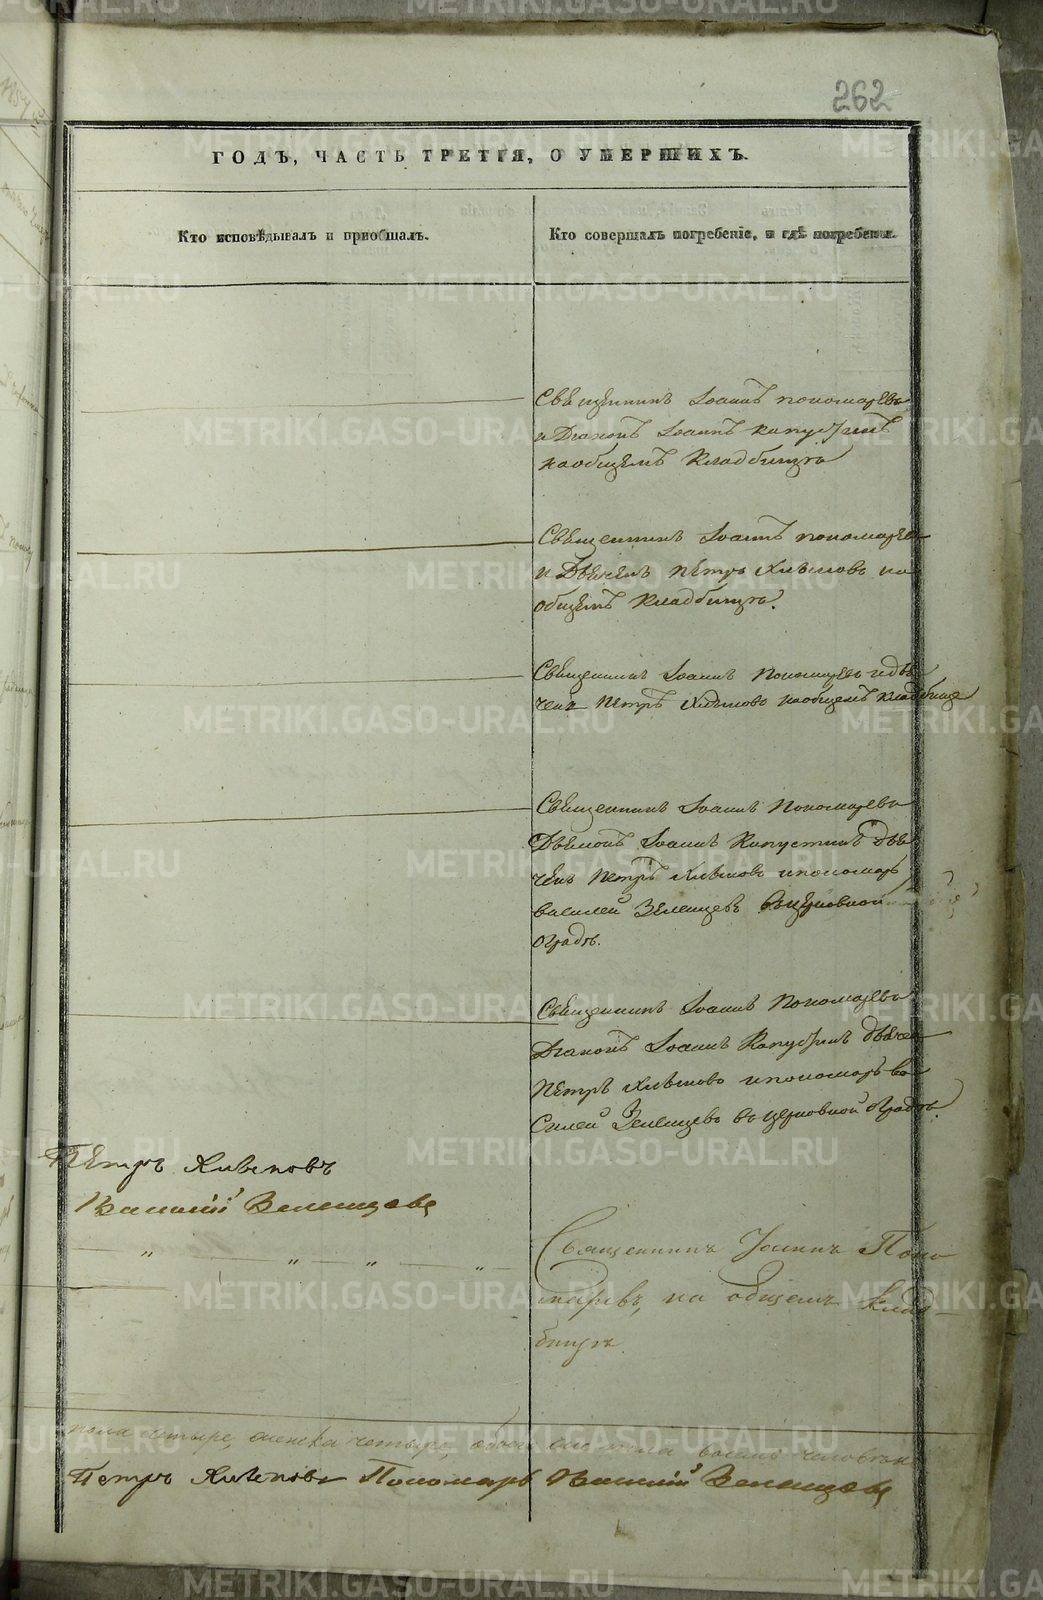 262
ГОДЪ, ЧАСТЬ ТРЕТІЯ, О УМЕРШИХЪ.
Кто исповѣдывалъ и пріобщалъ.
Кто совершалъ погребеніе, и гдѣ погребены.
Священникъ Іоаннъ пономаревъ
и Діаконъ Іоаннъ капустинъ
наобщемъ Кладбищѣ
Священникъ Іоаннъ пономаревъ
и Дьячекъ пЕтръ Хлыновъ на
общемъ Кладбищѣ.
Священникъ Іоаннъ Пономаревъ идья
чекъ пЕтръ Хлыновъ наобщемъ кладбище
Священникъ Іоаннъ Пономаревъ
Дьяконъ Іоаннъ Капустинъ дья
чекъ пЕтръ Хлыновъ ипономарь
василей Зеленцовъ вЦерковной
оградѣ.
Священникъ Іоаннъ Пономаревъ
Діаконъ Іоаннъ Капустинъ дьячекъ
пЕтръ Хлыновъ ипономарь ва
Силей Зеленцовъ въ церковной оградѣ.
Петръ Хлыновъ
Василій Зеленцовъ
Священникъ Іоаннъ Поно
маревъ, на общемъ клад-
бищѣ
пола четыре, женска четыре, обоего пола восемь человѣкъ
Петръ Хлыновъ Пономарь Василій Зеленцовъ
METRIKI.GASO-URAL.RU